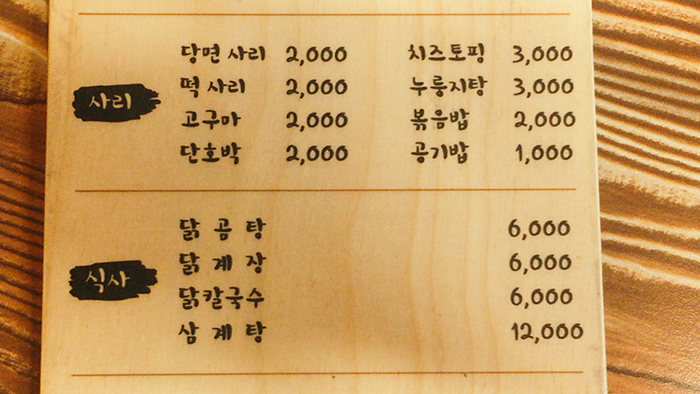 사리
당면 사리 2,000 치즈토핑 3,000
떡 사리 2,000 누룽지탕 3,000
고구마 2,000 볶음밥 2,000
단호박 2,000 공기밥 1,000
식사
닭 곰 탕 6,000
닭 계 장 6,000
닭칼국수 6,000
삼 계 탕 12,000